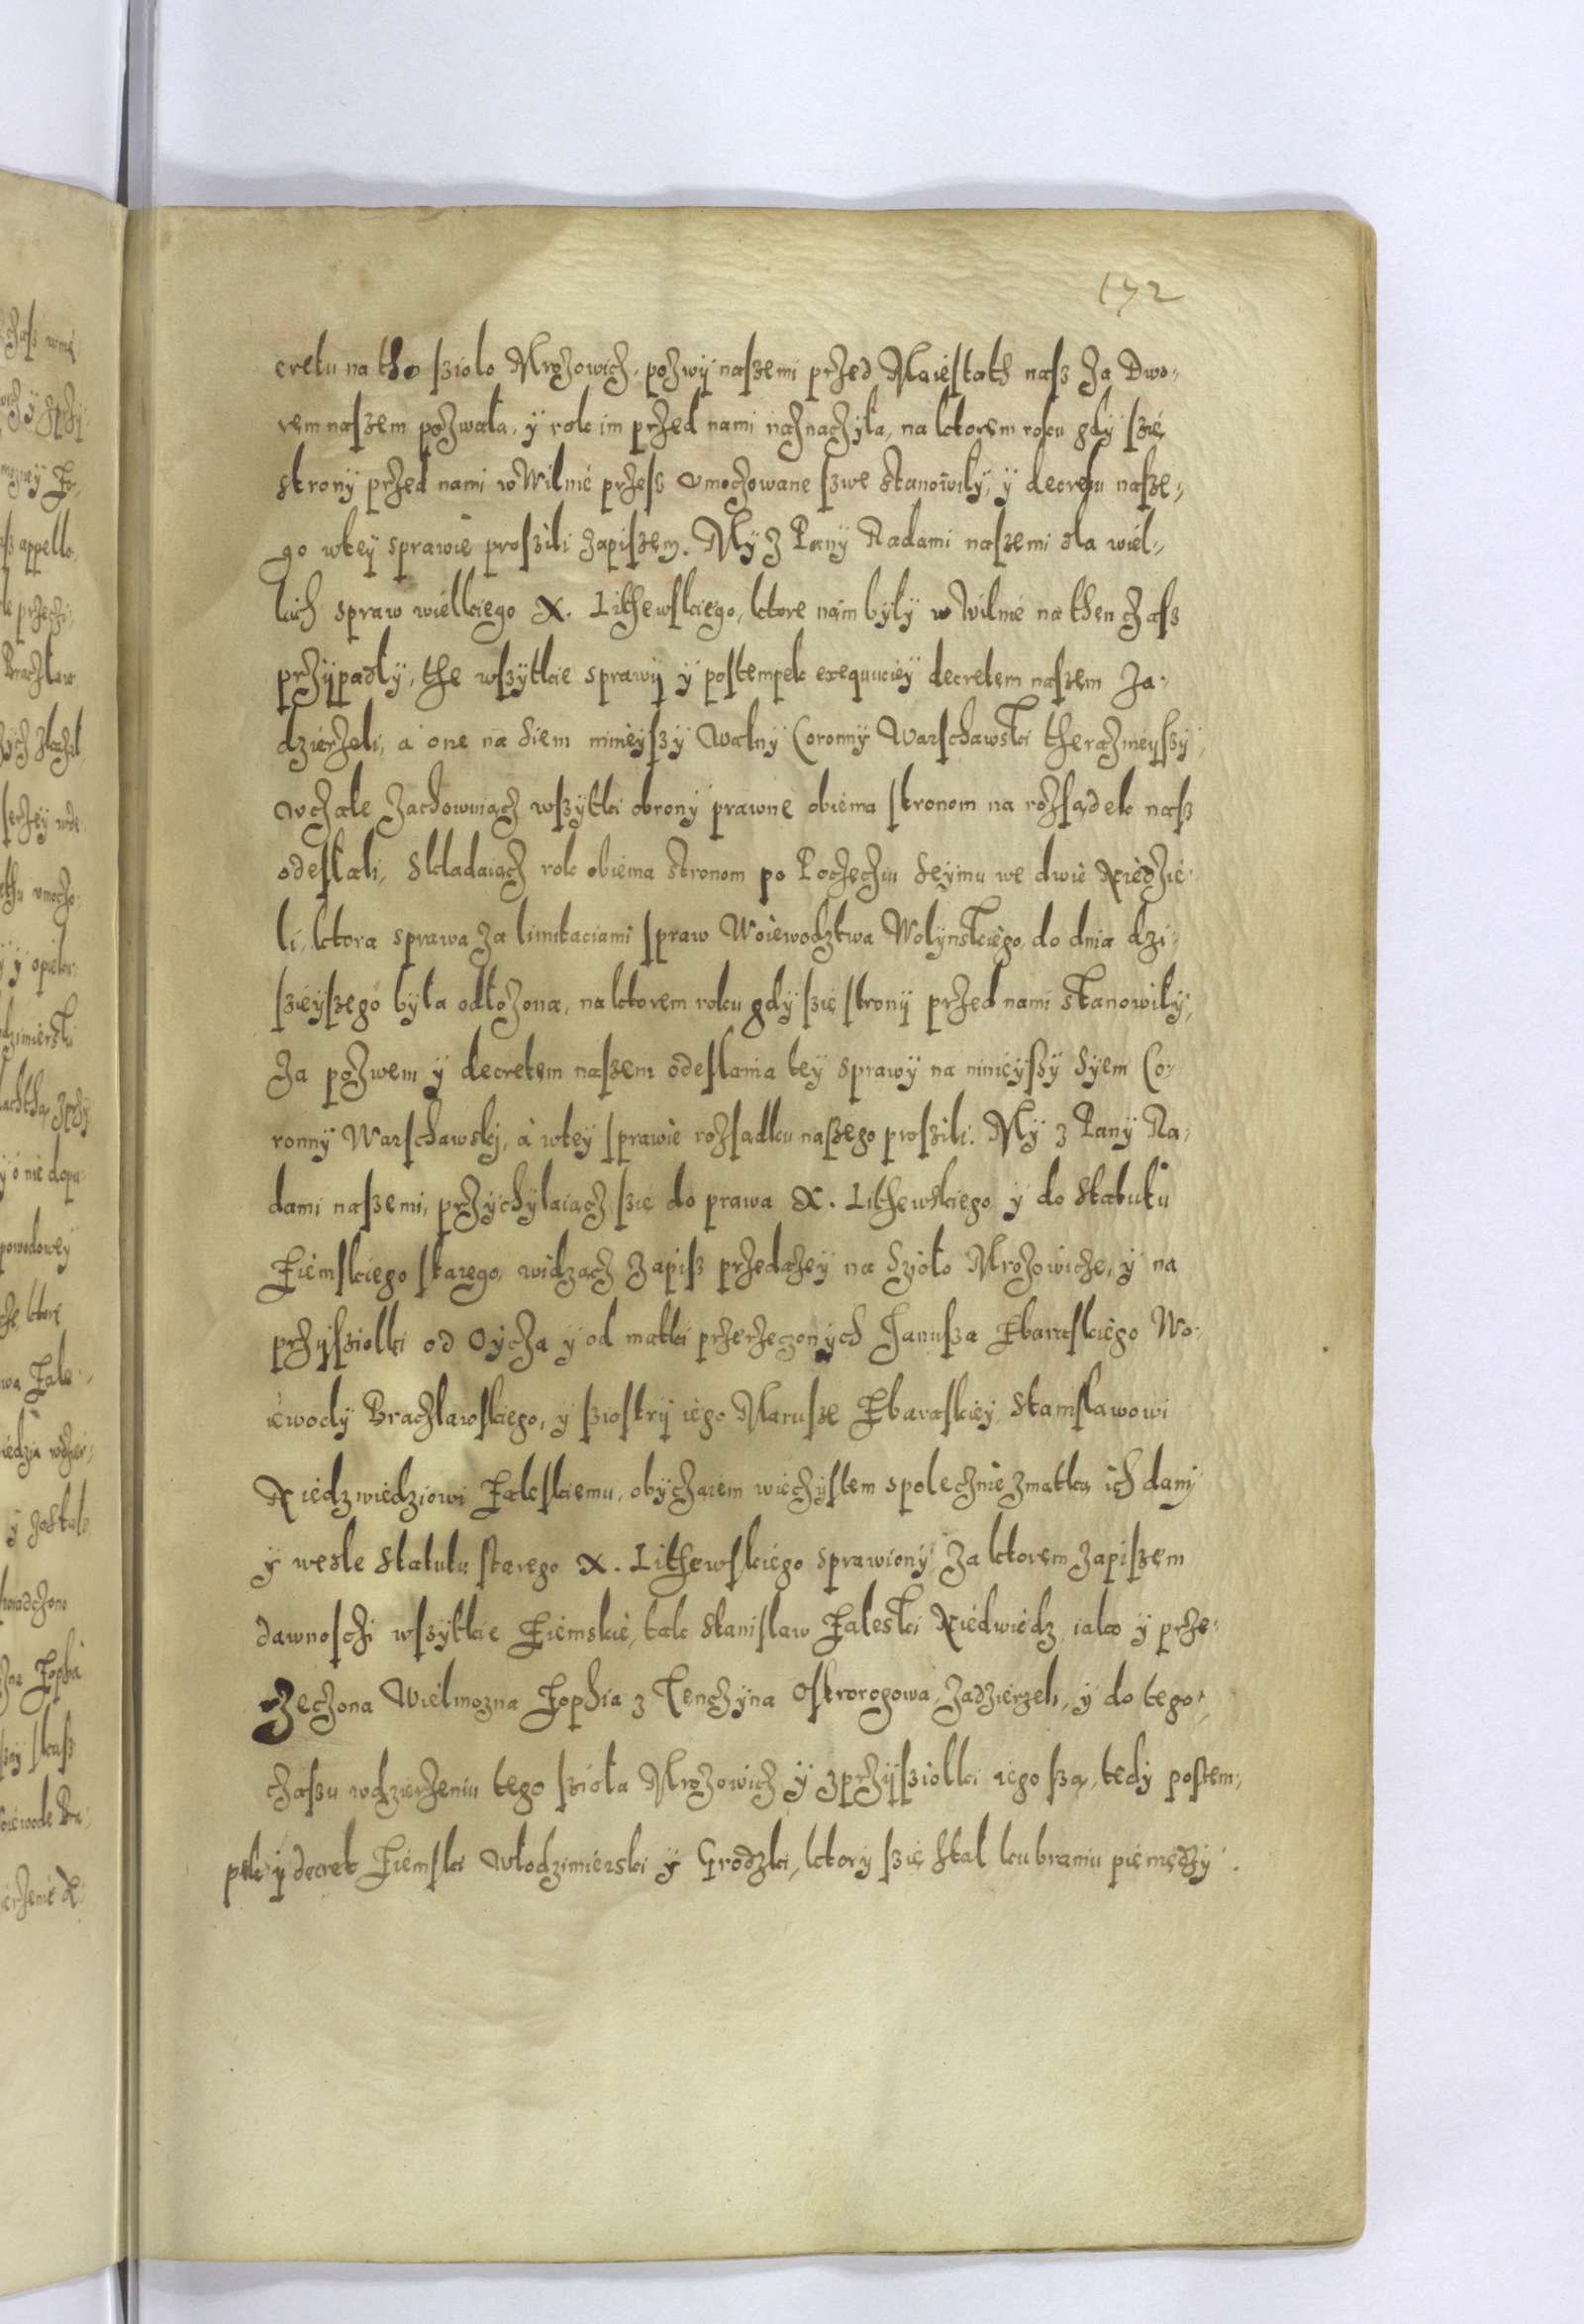 172
cretu na tho sziolo Mrozowicz, pozwÿ naszemi przed Maiestath nasz za Dwo-
rem naszem pozwała, ÿ rok im przed nami naznaczÿła, na ktorem roku gdÿ szię
stronÿ przed nami w Wilnie przesz umoczowane szwe stanowiłÿ, ÿ decretu nasze-
go wteÿ sprawie prosżili zapiszem. Mÿ z Panÿ Radami naszemi dla wiel-
kich spraw wielkiego X. Lithewskiego, ktore nam bÿłÿ w Wilnie na then czasz
przÿpadłÿ, the wszÿtkie sprawÿ ÿ postempek exequucieÿ decretem naszem za-
dzierżeli, a one na Siem ninieÿszÿ Walnÿ Coronnÿ Warschawski theraznieÿszÿ,
wczale zachowuiącz wszÿtki obronÿ prawne obiema stronom na rozsądek nasz
odesłali, składaiącz rok obiema stronom po Poczęcziu Seÿmu we dwie Niedzie-
li, ktora sprawa za limitaciami spraw Woiewodztwa Wolÿnskiego, do dnia dzi-
szieÿszego bÿła odłożona, na ktorem roku gdÿ szię stronÿ przed nami stanowiłÿ,
za pozwem ÿ decretem naszem odesłania teÿ sprawÿ na ninieÿszÿ Syem Co-
ronnÿ Warschawskj, a wteÿ sprawie rozsadku naszego proszili. Mÿ z Panÿ Ra-
dami naszemi, przÿchÿlaiącz szię do prawa X. Lithewskiego ÿ do Statutu
Ziemskiego starego, widzącz zapisz przedażeÿ na Szioło Mrozowicze, ÿ na
przÿsziołki od Oÿcza ÿ od matki przerzeczonÿch Janusza Zbaraskiego Wo-
iewodÿ Braczławskiego, ÿ sziostrÿ iego Marusze Zbaraskieÿ, Stanisławowi
Niedzwiedziowi Zaleskiemu, obÿczaiem wieczÿstem społecznie zmatką ich danÿ
ÿ wedle Statutu starego X. Lithewskiego sprawionÿ, za ktorem zapiszem
dawnosczi wszÿtkie Ziemskie, tak Stanisław Zaleski Niedwiedz, iako ÿ prze-
rzeczona Wielmozna Zophia z Tenczÿna Ostrorogowa, zadzierzeli, ÿ do tego
czaszu wdzierżeniu tego szioła Mrozowicz ÿ zprzÿsziołki iego szą, tedÿ postem-
pek ÿ decret Ziemski Włodzimierski ÿ Grodzki, ktorÿ szię stał ku braniu pieniędzÿ.